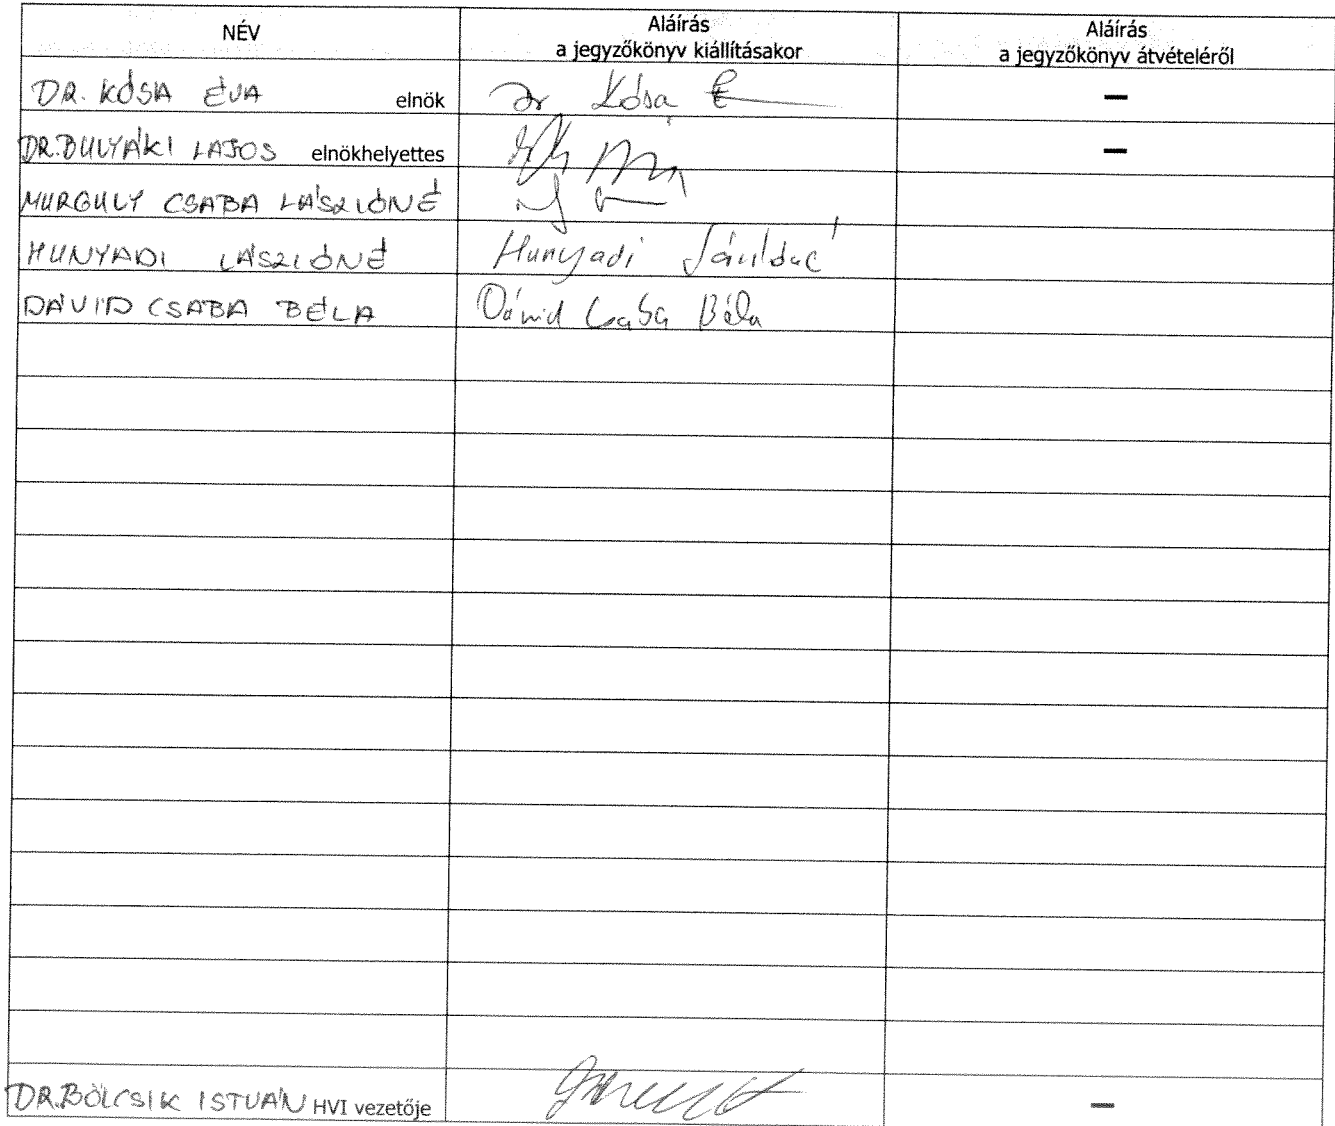 NÉV Aláírás Aláírás
a jegyzőkönyv kiállításakor a jegyzőkönyv átvételéről
DR. KÓSA ÉVA elnök Dr Kósa É –
DR. BULYÁKI LAJOS elnökhelyettes –
MURGULY CSABA LÁSZLÓNÉ
HUNYADI LÁSZLÓNÉ Hunyadi Lászlóné
DÁVID CSABA BÉLA Dávid Csaba Béla
DR. BÖLCSIK ISTVÁN HVI vezetője –